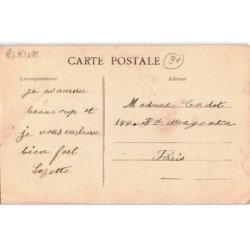 CARTE POSTALE
91
Correspondance
Adresse
je m'amuse
beaucoup et
je vous embrasse
bien fort
Suzette
Madame Cadot
144 Bd Magenta
Paris